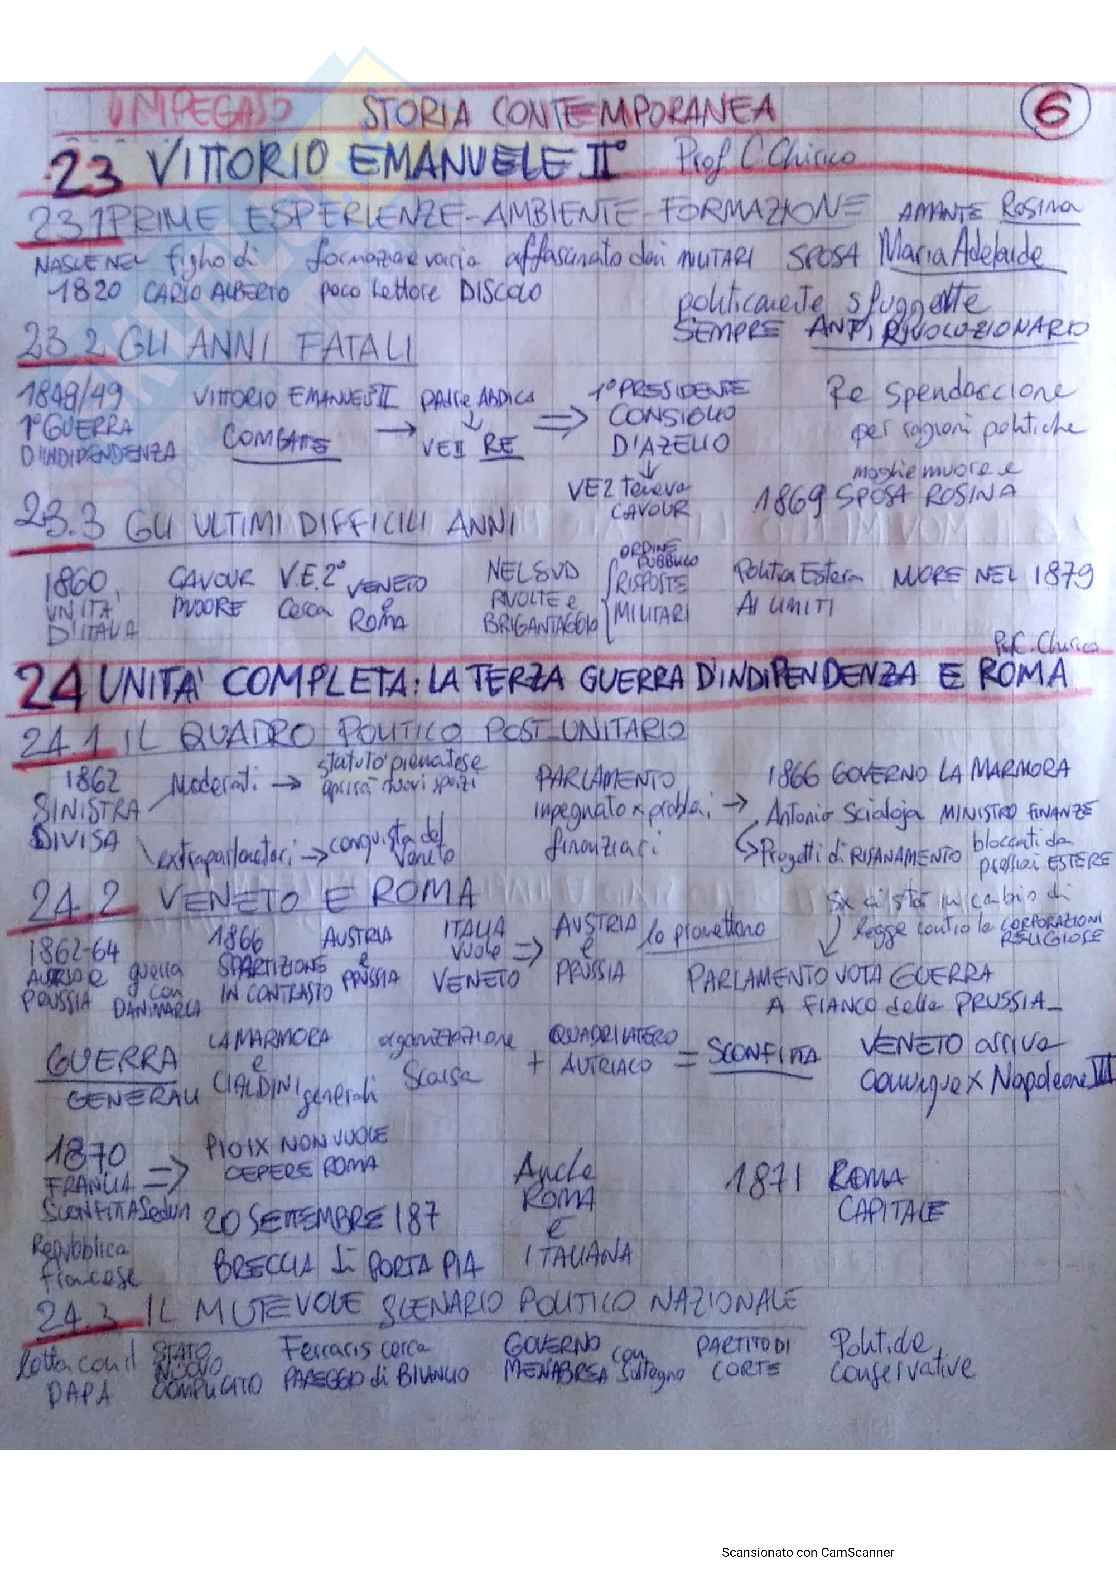 UNIPEGASO STORIA CONTEMPORANEA 6
23 VITTORIO EMANUELE II° Prof C. Chirico
23.1 PRIME ESPERIENZE-AMBIENTE-FORMAZIONE AMANTE Rosina
NASCE NEL figlio di formazione varia affascinato dai MILITARI SPOSA Maria Adelaide
1820 CARLO ALBERTO poco lettore DISCOLO
politicamente sfuggente
SEMPRE ANTIRIVOLUZIONARIO
23.2 GLI ANNI FATALI
1848/49 VITTORIO EMANUELE II PADRE ABDICA => 1° PRESIDENTE Re spendaccione
1° GUERRA COMBATTE → ↓ CONSIGLIO per ragioni politiche
D'INDIPENDENZA VE II RE D'AZEGLIO
↓ moglie muore e
VE2 teneva 1869 SPOSA ROSINA
CAVOUR
23.3 GLI ULTIMI DIFFICILI ANNI
1860, CAVOUR V.E.2° VENETO NEL SUD ORDINE PUBBLICO Politica Estera MUORE NEL 1879
UNITA MUORE Cerca e RIVOLTE e RISPOSTE AI LIMITI
D'ITALIA ROMA BRIGANTAGGIO MILITARI
Prof C. Chirico
24 UNITA' COMPLETA: LA TERZA GUERRA D'INDIPENDENZA E ROMA
24.1 IL QUADRO POLITICO POST-UNITARIO
1862 Moderati → statuto piemontese PARLAMENTO 1866 GOVERNO LA MARMORA
SINISTRA nuovi spazi impegnato x problemi → Antonio Scialoja MINISTRO FINANZE
DIVISA extraparlamentari → conquista del Veneto finanziari Progetti di RISANAMENTO bloccati da
pressioni ESTERE
24.2 VENETO E ROMA in cambio di
legge contro le CORPORAZIONI RELIGIOSE
1862-64 1866 AUSTRIA ITALIA AUSTRIA
AUSTRIA e guerra SPARTIZIONE e vuole => e lo promettono
PRUSSIA con DANIMARCA IN CONTRASTO PRUSSIA VENETO PRUSSIA PARLAMENTO VOTA GUERRA
A FIANCO della PRUSSIA
GUERRA LA MARMORA organizzazione + QUADRILATERO = SCONFITTA VENETO arriva
GENERALI e CIALDINI generali Scarsa AUTRIACO comunque x Napoleone III
1870 => PIO IX NON VUOLE
FRANCIA CEDERE ROMA Anche 1871 ROMA
SCONFITTA Sedan 20 SETTEMBRE 187 ROMA CAPITALE
Repubblica BRECCIA di PORTA PIA È
francese ITALIANA
24.3 IL MUTEVOLE SCENARIO POLITICO NAZIONALE
Lotta con il STATO Ferraris cerca GOVERNO con PARTITO DI Politiche
PAPA NUOVO COMPLICATO PAREGGIO di BILANCIO MENABREA Sostegno CORTE conservative
Scansionato con CamScanner